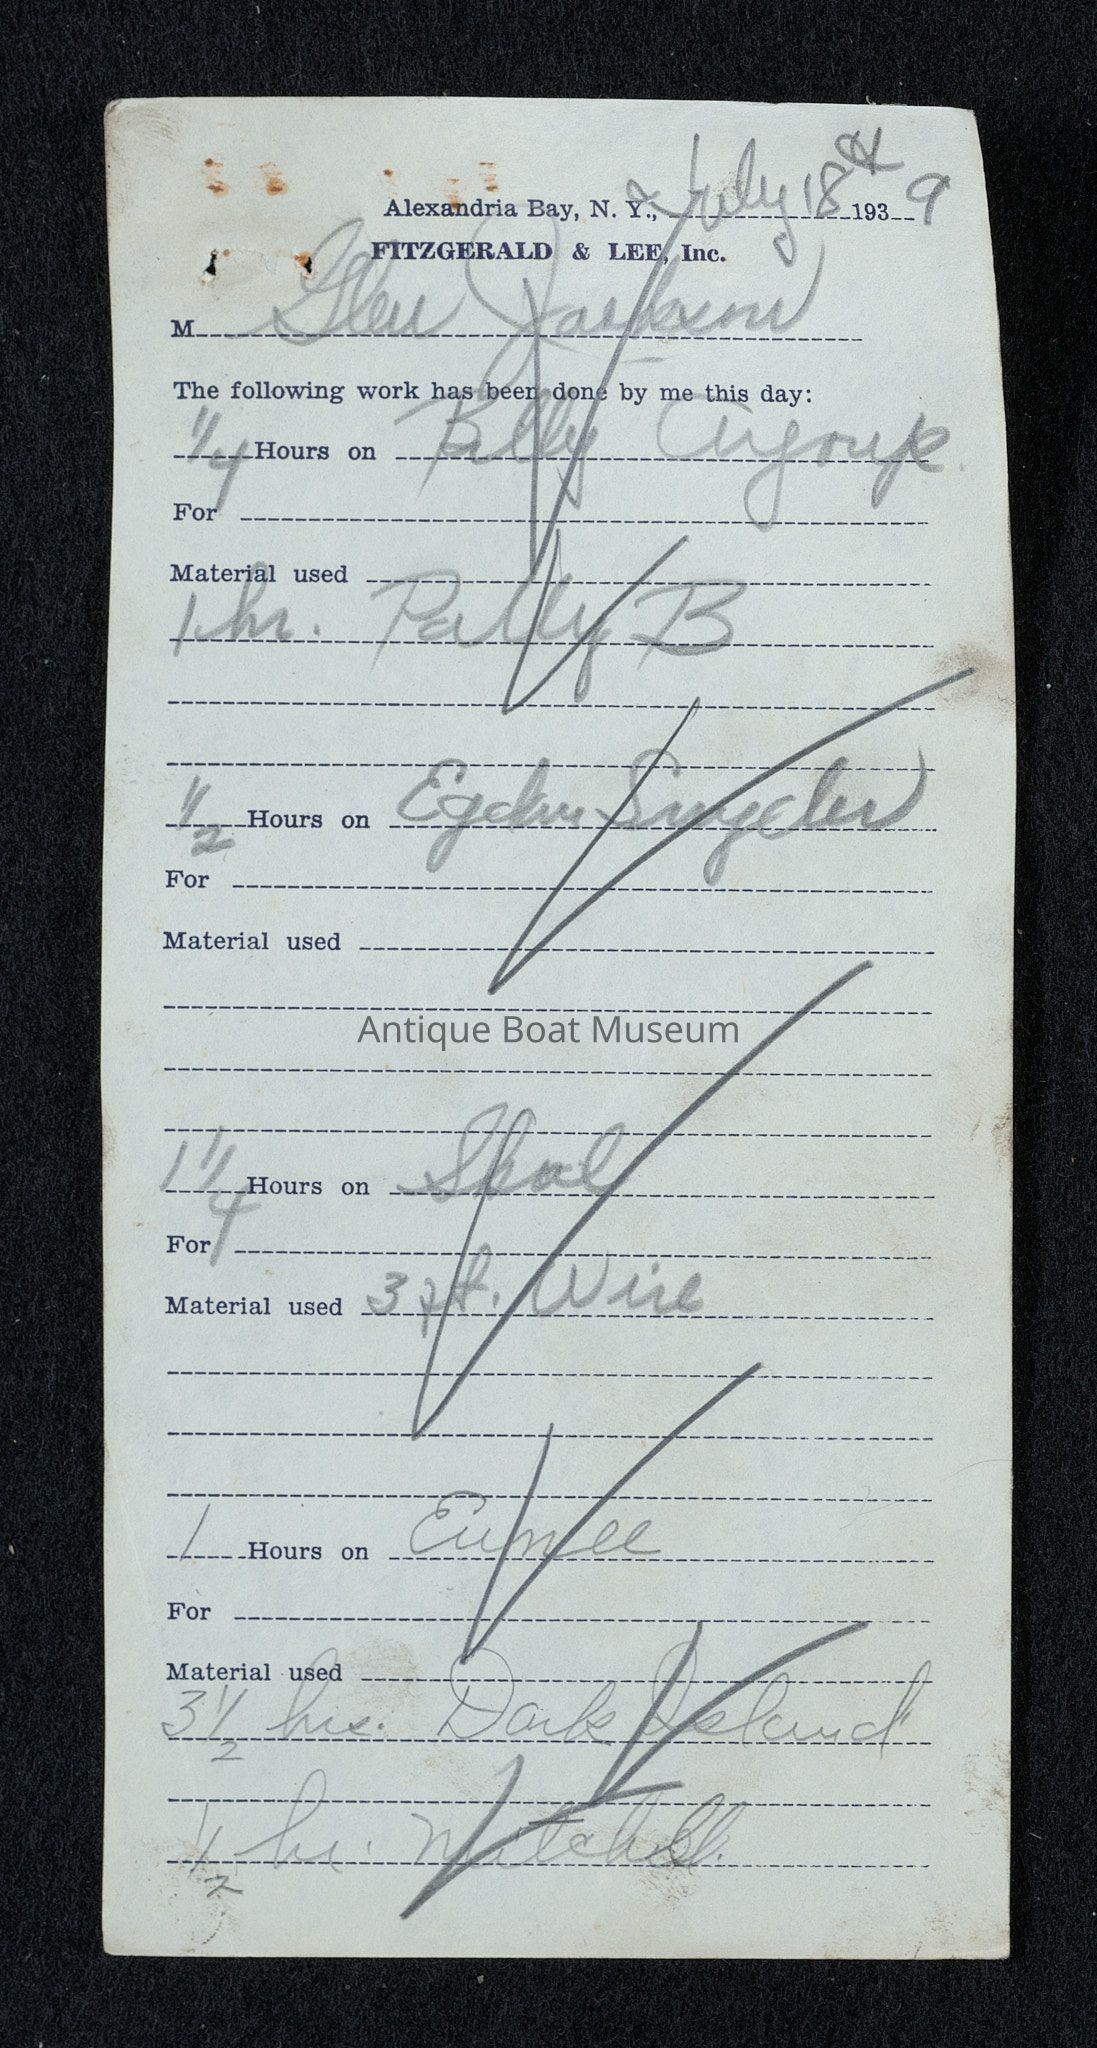 Alexandria Bay, N. Y., July 18th 1939
FITZGERALD & LEE, Inc.
M Glen Jackson
The following work has been done by me this day:
1/4 Hours on Billy
For
Material used
1 hr. Patty B
1/2 Hours on Snyder
For
Material used
Antique Boat Museum
1 1/4 Hours on Shoal
For
Material used 3 ft. Wire
1 Hours on
For
Material used
3 1/2 hrs. Dark Island
1/2 hr. Mitchell